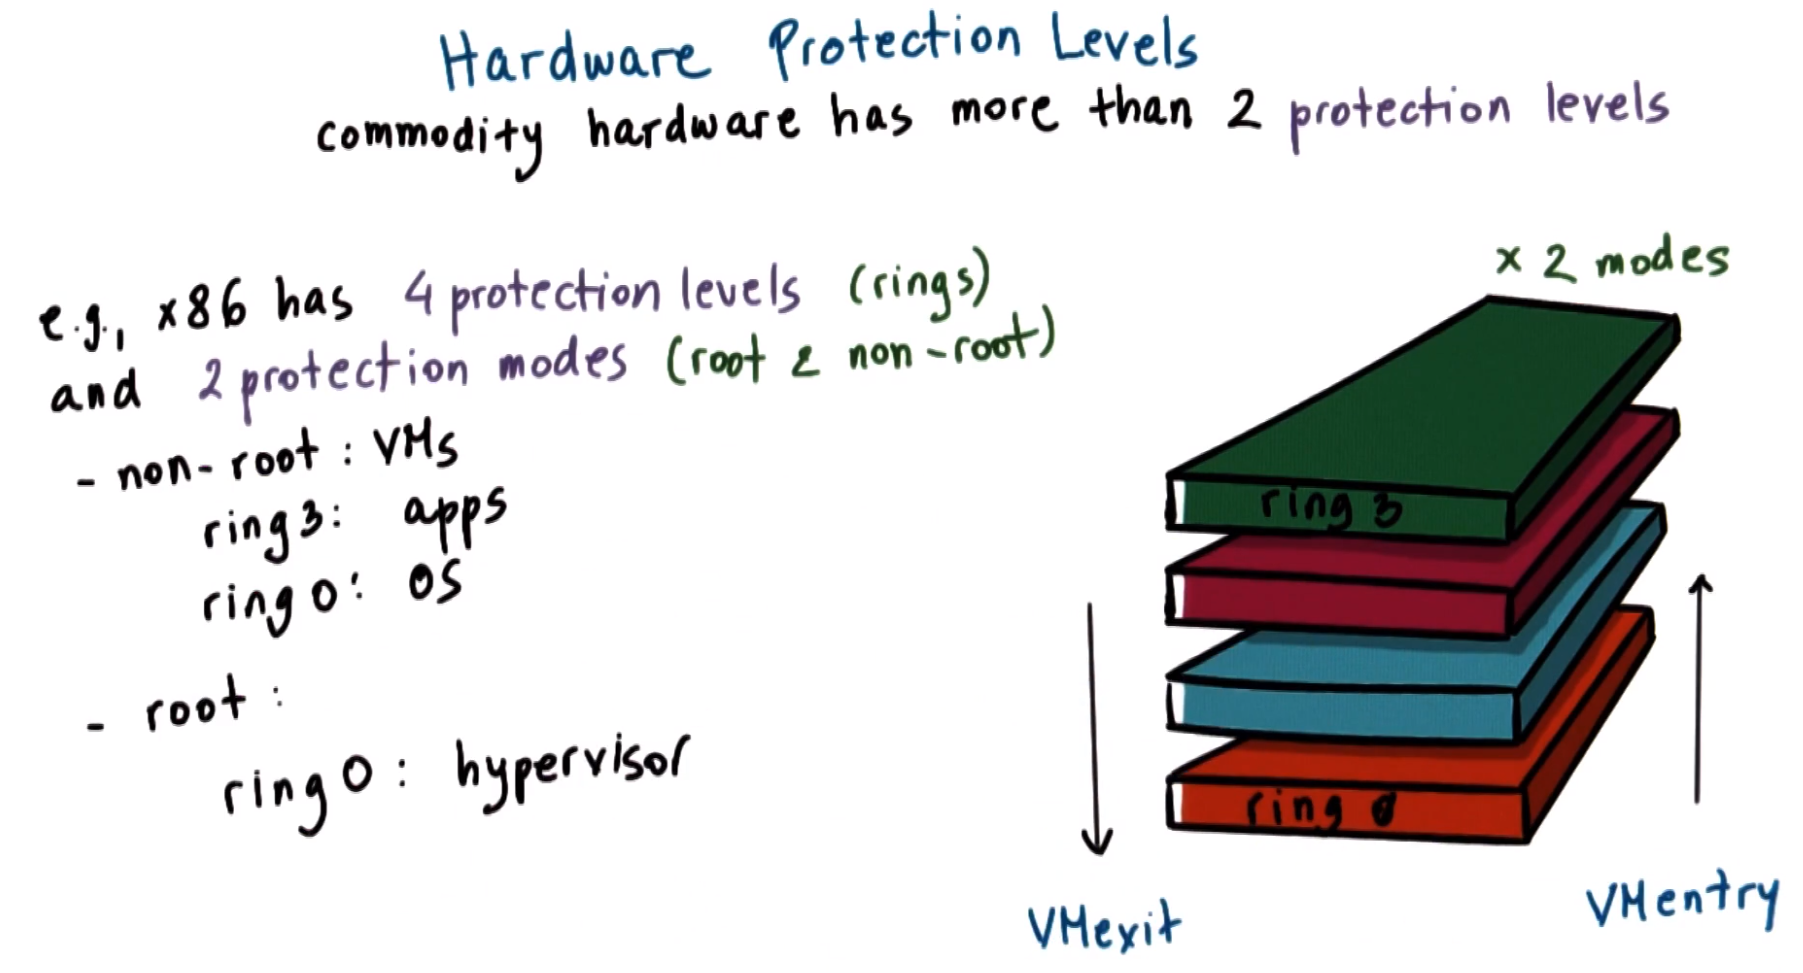 Hardware Protection Levels
commodity hardware has more than 2 protection levels
e.g., x86 has 4 protection levels (rings)
and 2 protection modes (root & non-root)
- non-root: VMs
ring 3: apps
ring 0: OS
- root:
ring 0: hypervisor
x 2 modes
ring 3
ring 0
VMexit
VMentry